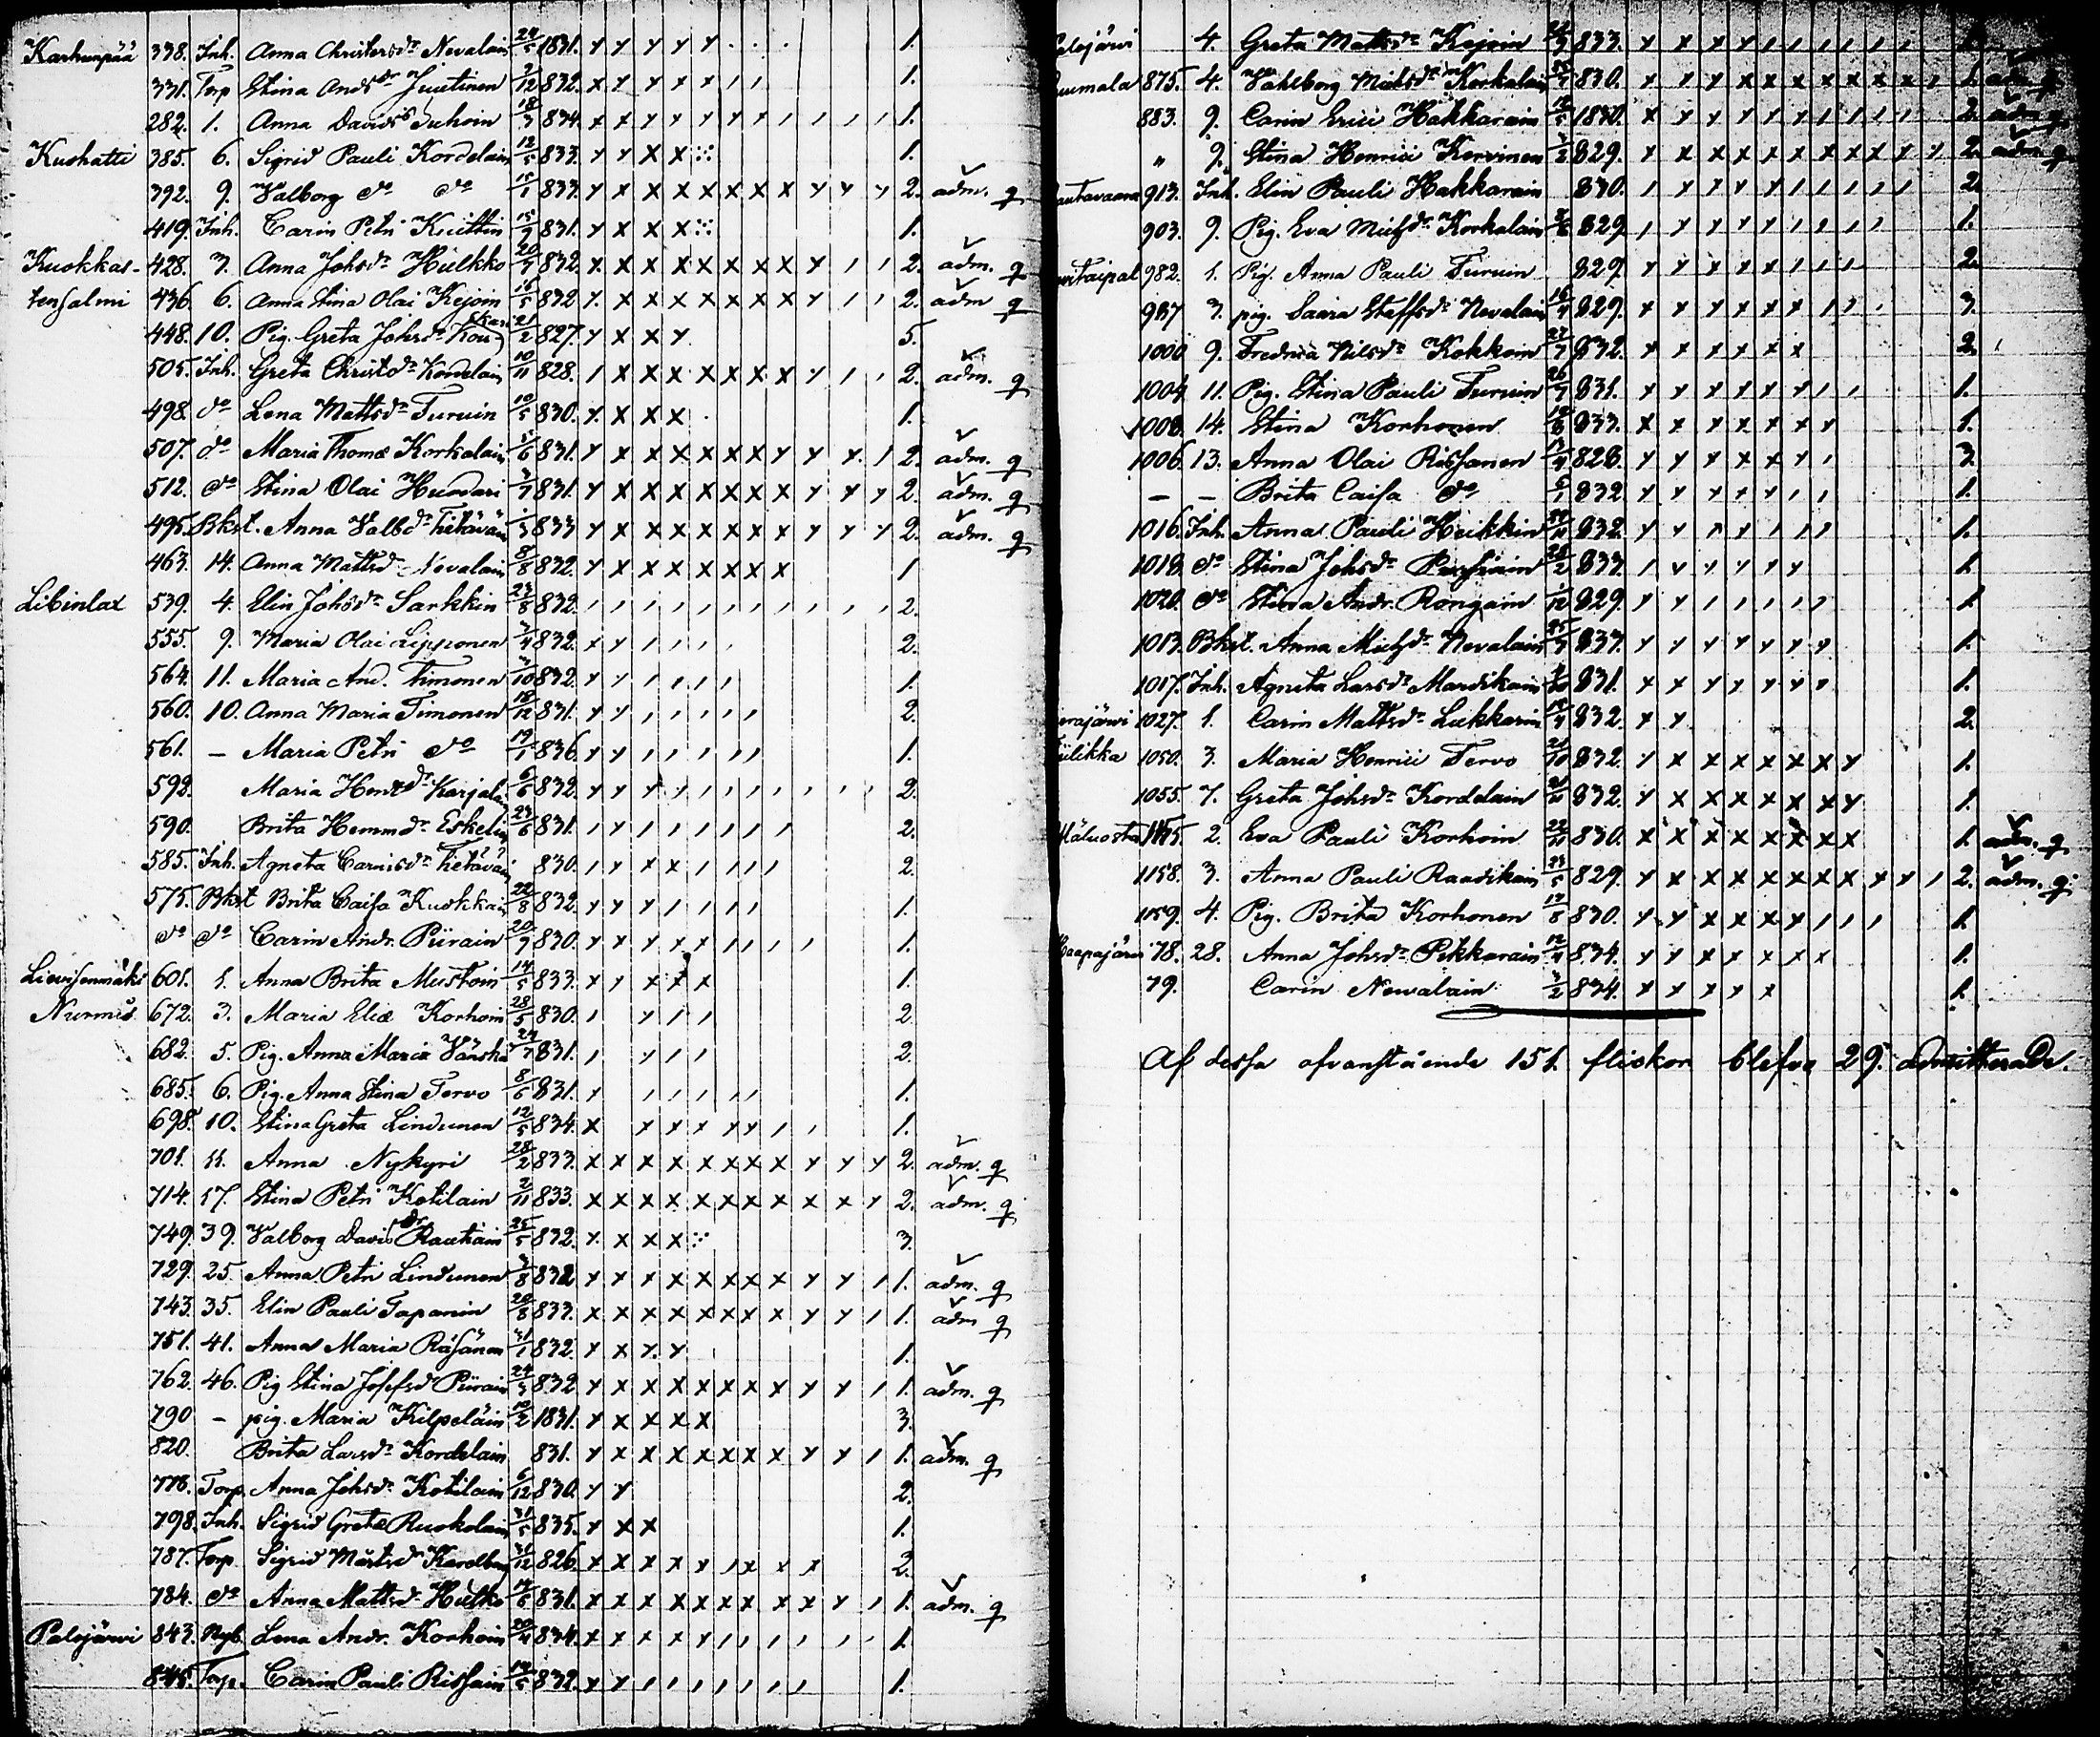 Karhunpää 338. Inh. Anna Christersdr Nevalain 24/5 1831. y y y y y . . . 1.
331. Torp Stina Andsdr Juutinen 2/12 832. x y y y x y , , 1.
282. 1. Anna Davidsdr Juhoin 18/3 834. x x y y y y y , , , , 1.
Kuohatti 385. 6. Sigrid Pauli Kordelain 12/5 833. y y x x 1.
392. 9. Valborg do do 833. y x x x x x x x y y y 2. adm. q
419. Inh. Carin Petri Kuittin 831. y x x x 1.
Kuokkas- 428. 3. Anna Johsdr Hulkko 832. x x x x x x x x y , , 2. adm. q
tensalmi 436. 6. Anna Stina Olai Kejoin 16/5 832 x x x x x x x x y , , 2. adm q
448. 10. Pig. Greta Johsdr 21/2 827. y x x y 5.
505. Inh. Greta Christdr Kordelain 10/11 828. , x x x x x x x y , , 2. adm. q
498. do Lena Mattsdr Turuin 10/5 830. x x x x 1.
507. do Maria Thomæ Korkalain 831. y x x x x x x x y y y , 2. adm. q
512. do Stina Olai Huovari 831. y x x x x x x x y y y 2. adm. q
495. Bkst. Anna Valbdr Tietäväin 833 y x x x x x x x y y y 2. adm. q
463. 14. Anna Mattsd Nevalain 8/8 832. y x x x x x x x 1
Libinlax 539. 4. Elin Johsdr Sarkkin 23/8 832. , , , , , , , , , , , 2.
555. 9. Maria Olai Lipponen 832. x y , , , , 2.
564. 11. Maria And. Timonen 832. y y , , , , 1.
560. 10. Anna Maria Timonen 18/12 831. y y , , , , , 2.
561. — Maria Petri do 19/1 836. y y , , , , , 1.
592. Maria Henrdr Karjalai 6/6 832. y y y y , , , , , , , 2.
590. Brita Hemmdr Eskelin 23/6 831. , y , , , , , , 2.
585. Inh. Agneta Carlsdr Tietäväin 830. , y x x , , , , 2.
575. Bkst Brita Caisa Kuokkain 22/8 832. y y y , , , , 1.
do do Carin Andr. Piirain 20/9 830. y y y x x , , , , 1.
Lievisenmäki 601. 1. Anna Brita Mustoin 14/5 833. x y x x x 1.
Nurmis 672. 3. Maria Eliæ Korhoin 28/5 830. , y , , 2
682. 5. Pig. Anna Maria Vänska 831. , y , , 2.
685. 6. Pig. Anna Stina Tervo 8/6 831. y , , , , , 1.
698. 10. Stina Greta Lindunen 12/5 834. x x y x y y , , 1.
701. 11. Anna Nykyri 28/2 833. x x x x x x x x y y y 2. adm. q
714. 17. Stina Petri Kotilain 2/11 833. x x x x x x x x x x y 2. adm. q
749. 39. Valborg Davidsdr Rautiain 25/5 832. y x x x 3.
729. 25. Anna Petri Lindunen 832 x x x x x x x x y y , 1. adm. q
743. 35. Elin Pauli Tapanin 20/8 833. x x x x x x x x y y , 1. adm q
751. 41. Anna Maria Räsänen 31/1 832. y x y y 1.
762. 46. Pig Stina Josefsd Piirain 832. y x x x x x x x y y , 1. adm. q
790 — pig. Maria Kilpeläin 1831. y x x x x 3.
820. Brita Larsdr Kordelain 831. y x x x x x x x y y , 1. adm. q
778. Torp. Anna Johsdr Kotilain 6/12 830. y y 2.
798. Inh. Sigrid Greta Ruokolain 31/5 835. y x x 1.
787. Torp. Sigrid Mårtsd 31/12 826. x x x x y , x x x 2.
784. do Anna Mattsdr Hulko 831. x x x x x x x x x y , 1. adm. q
Palojärvi 843. Nyb. Lena Andr. Korhoin 834. x x x x y , , , , , , 1.
845. Torp. Carin Pauli Rissain 832. y y , , , , , , , 1.
Palojärvi 4. Greta Mattsdr Kejoin 833. y x x y , , , , , , 1.
875. 4. Vahlborg Mickdr Korkalain 830. y y y x x x x x x x y 1. adm. q
883. 9. Carin Erici Hakkarain 1830. x y y y y y y , , , 2. adm q
" 9. Stina Henrici Kervinen 829. y x x x x x x x x y y 2. adm. q
913. Inh. Elin Pauli Hakkarain 830. , y y y y , , , , , 2.
903. 9. Pig. Eva Michsdr Korkalain 829. , y y y y y , , , 1.
982. 1. Pig. Anna Pauli Turuin 829. y y y y y , , , 2.
987 3. pig. Saara Staffsdr Nevalain 829. x y y y x x , , , 3.
1000 9. Fredrica Nilsdr Kokkoin 832. y x x x x x 2.
1004. 11. Pig. Stina Pauli Turuin 831. y y y y y y , , 1.
1008. 14. Stina Korhonen 833. x x x x x x y 1.
1006. 13. Anna Olai Rissanen 828. y y y x x y , 3.
— — Brita Caisa do 832. y y y y y , , 1.
1016. Inh. Anna Pauli Heikkin 832. y y y y , , , 1.
1018. do Stina Johsdr 833. , y y y y y 1.
1020. do Stina Andr. Rongain 829. y y , , , , , 1
1013. Bkst. Anna Michsdr Nevalain 833. y y y y y y y 1.
1017. Inh. Agneta Larsdr Mardikain 831. y x y y y y y 1.
1027. 1. Carin Mattsdr Lukkarin 832. x x 2.
1050. 3. Maria Henrici Tervo 832. y x x x x x x y 1.
1055. 7. Greta Johsdr Kordelain 832. y x x x x x x y 1.
2. Eva Pauli Korhoin 830. x x x x x x x x 1. adm. q
1158. 3. Anna Pauli Raadikain 829. y x x x x x x x y y , 2. adm. q
1159. 4. Pig. Brita Korhonen 830. y y x x x y , , , 1.
Haapajärvi 78. 28. Anna Johsdr Pikkarain 834. y y x x x x x 1.
79. Carin Newalain 834. x x x x x 1.
Af dessa ofvanstående 151. flickor blefvo 29. admitterade.